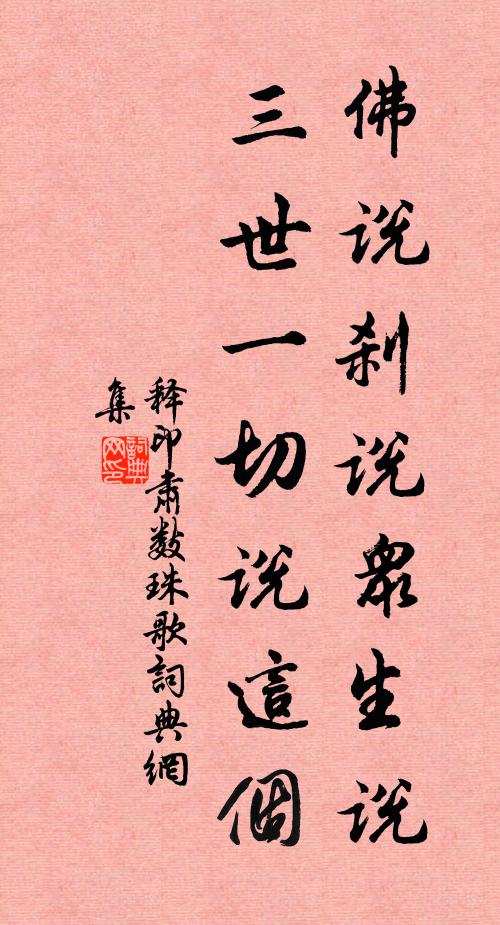 佛说刹说眾生说
三世一切说這個
释印肅数珠歌詞典網
集
詞典网印